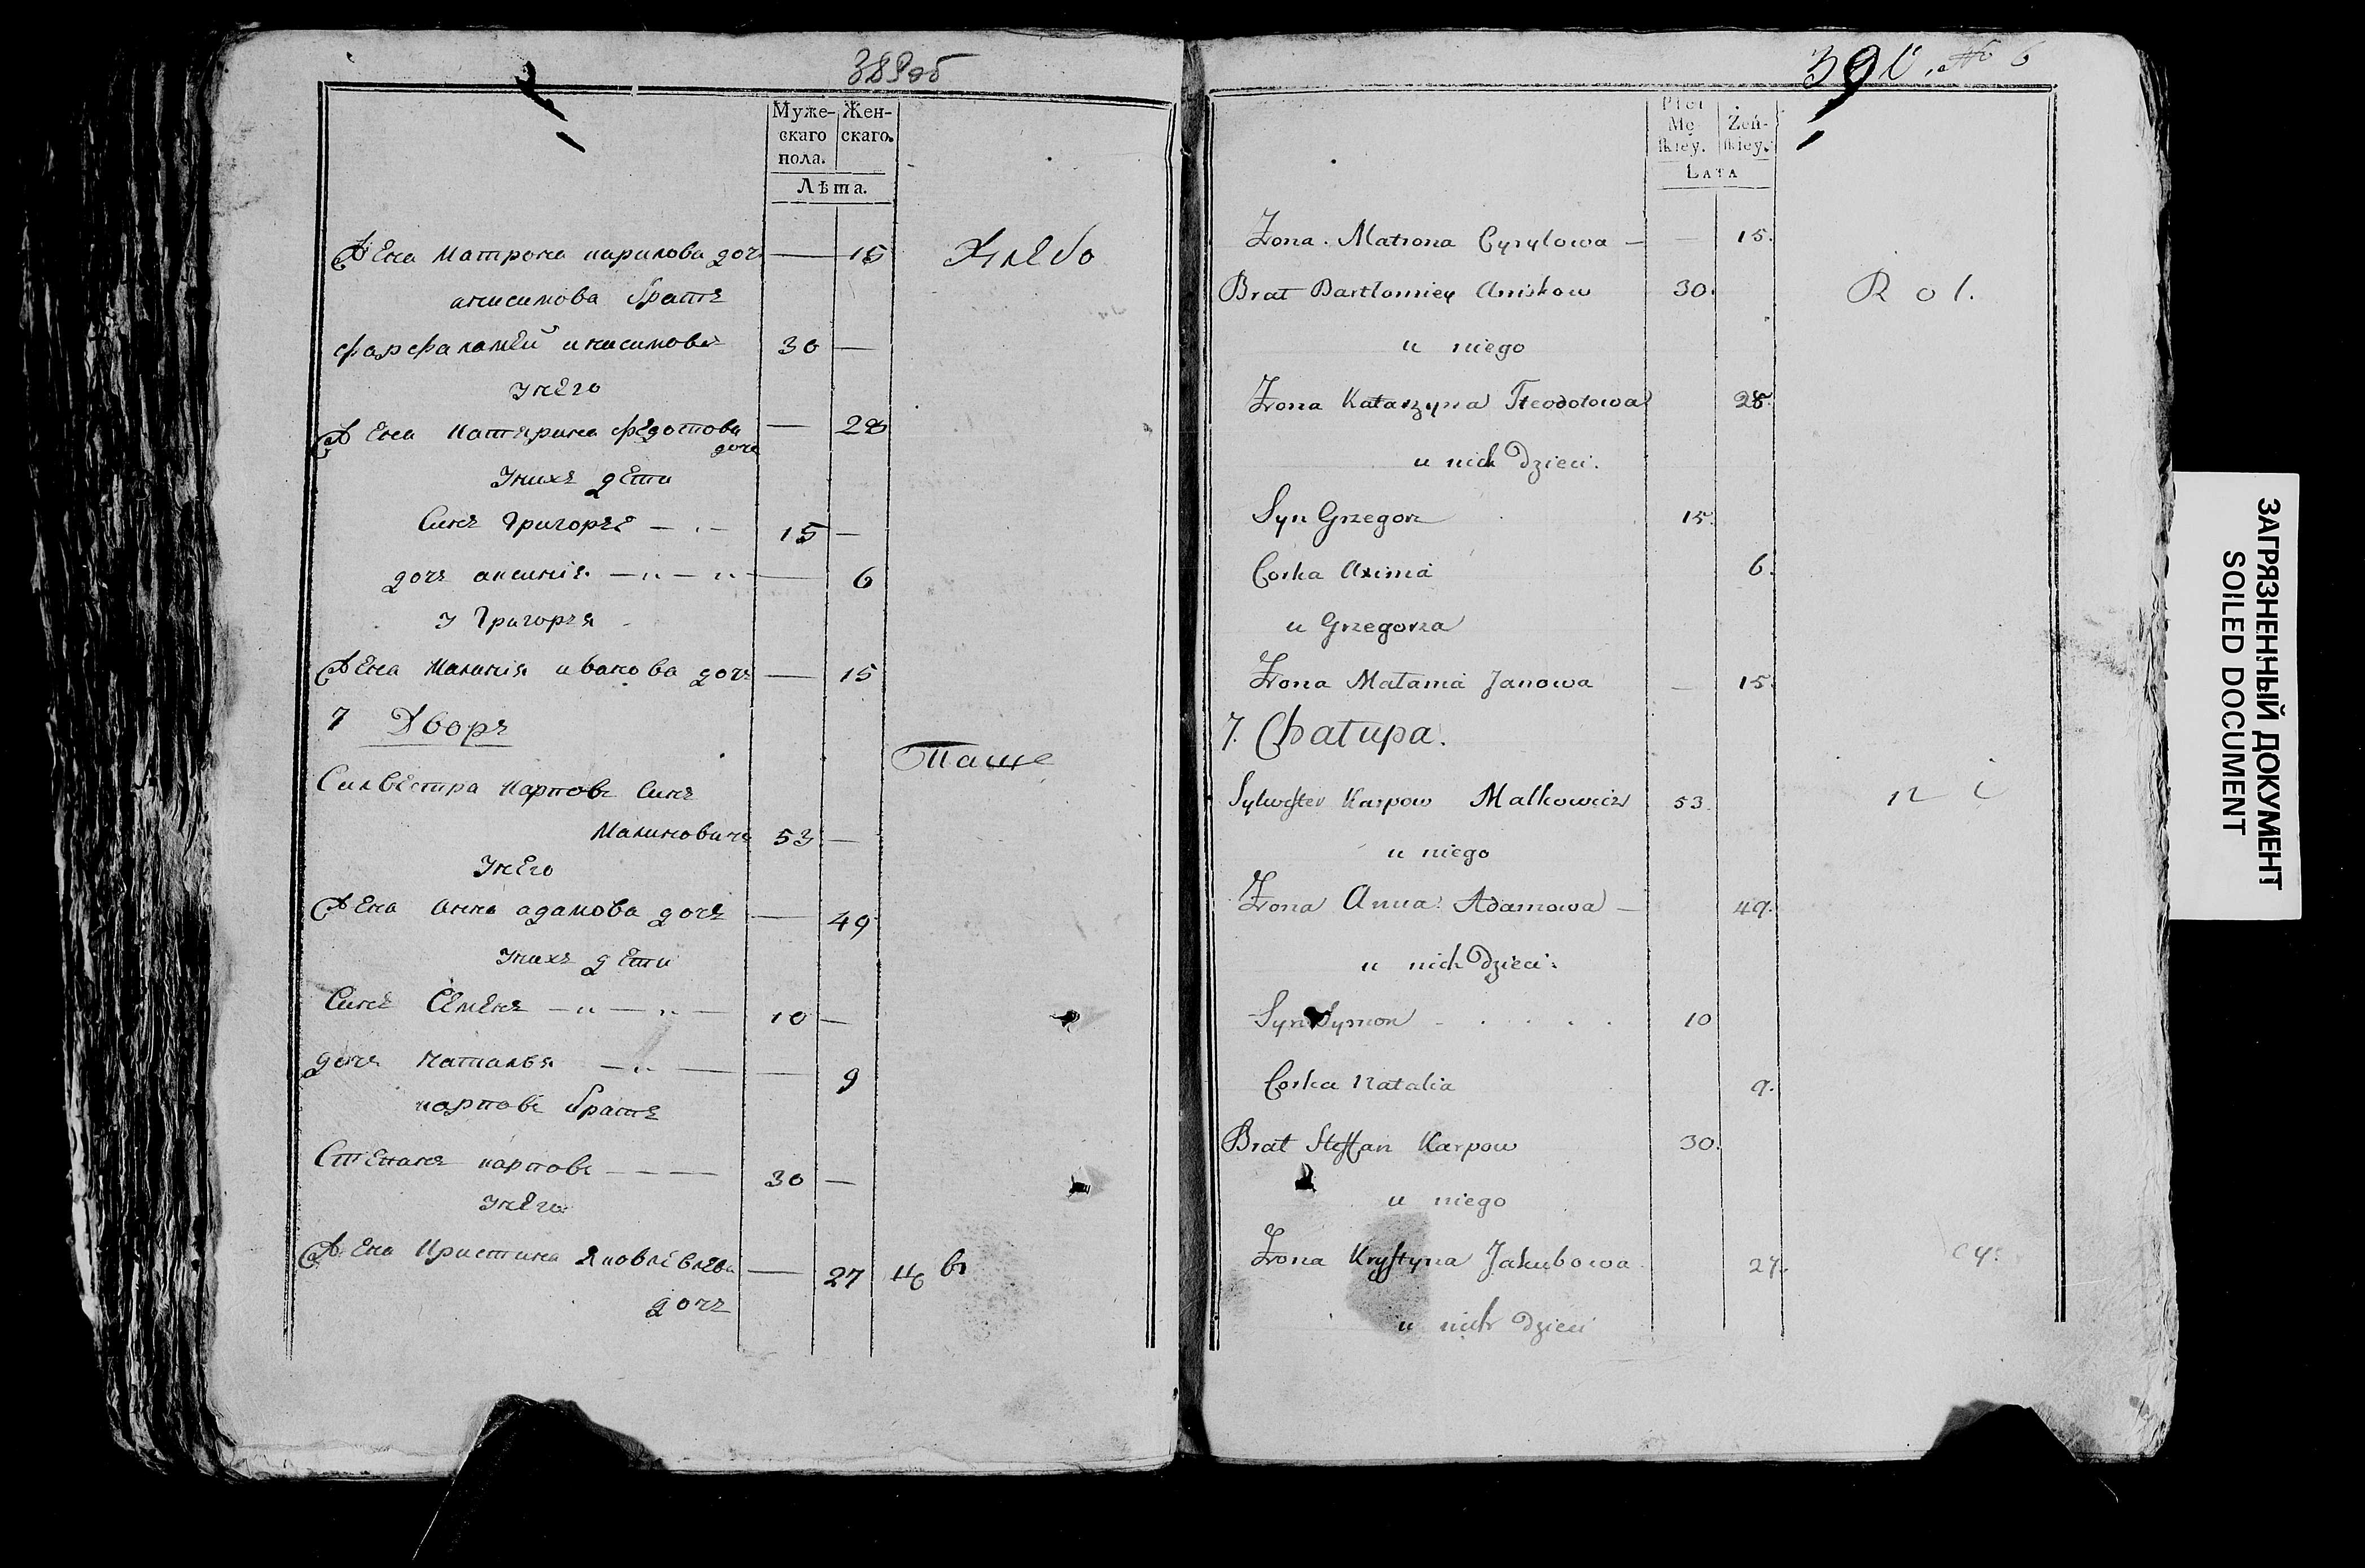 389 об
Муже-
скаго
пола.
Жен-
скаго.
Лѣта.
Жена Матрона карилова доч — 15 Хлебо
анисимова братъ
фарфаламей анисимовъ 30 —
Унего
Жена Катярина федотова — 28
дочь
Унихъ дети
Синъ Григорей — 15 —
дочь аксиния — 6
У Григорья
Жена Малания иванова дочъ — 15
7 Дворъ
Паше
Силвестра Карповъ Синъ
Малиновичъ 53 —
Унего
Жена Анна адамова дочъ — 49
Унихъ дети
Синъ Семенъ — 10 —
дочь Наталья — 9
карповъ братъ
Степанъ карповъ — 30 —
Унего
Жена Кристина Яковлевлева — 27
дочъ
390. № 6
Płci
Mę
skiey.
Żeń-
skiey.
LATA
Żona Matrona Cyrylowa — — 15.
Brat Bartłomiey Aniskow 30. Rol.
u niego
Żona Katarzyna Fteodotowa 28.
u nich Dzieci.
Syn Grzegorz 15.
Corka Axinia 6.
u Grzegorza
Żona Małania Janowa — 15.
7. Chatupa.
Sylwester Karpow Malkowicz 53. n i
u niego
Żona Anna Adamowa — 49.
u nich Dzieci.
Syn Symon 10
Corka Natalia 9.
Brat Steffan Karpow 30.
u niego
Żona Krystyna Jakubowa 27. cy.
u nich Dzieci
ЗАГРЯЗНЕННЫЙ ДОКУМЕНТ
SOILED DOCUMENT